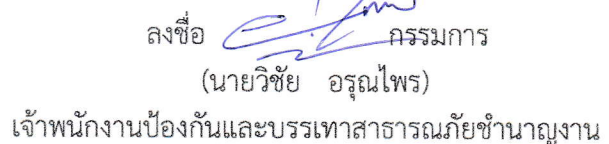 ลงชื่อ กรรมการ
(นายวิชัย อรุณไพร)
เจ้าพนักงานป้องกันและบรรเทาสาธารณภัยชำนาญงาน